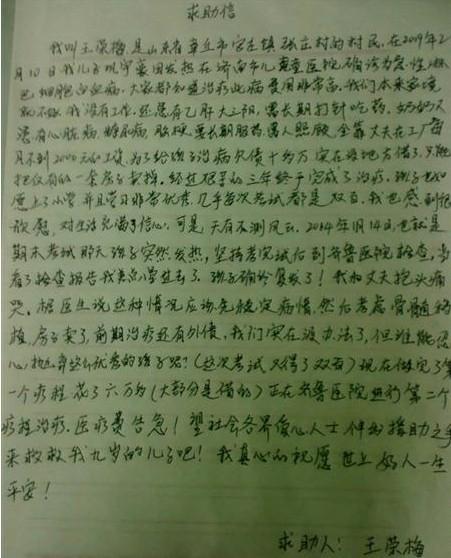 求助信
我叫王荣梅,是山东省章丘市官庄镇张庄村的村民,在2009年2
月10日我儿子现宇豪因发热在济南市儿童医院确诊为急性淋
巴细胞白血病,大家都知道治疗此病费用非常高,我们本来家境
就不好,我没有工作,还患有乙肝大三阳,需长期打针吃药,奶奶又
患有心脏病,糖尿病,脑梗,需长期服药,需人照顾,全靠丈夫在工厂每
月不到2000元的工资,为了给孩子治病欠债十多万实在没地方借了,只能
把仅有的一套房子卖掉,经过艰辛的三年终于完成了治疗,孩子也如
愿上了小学,并且学习非常优秀,几乎每次考试都是双百,我也感到很
欣慰,对生活充满了信心,可是天有不测风云,2014年1月14日也就是
期末考试那天孩子突然发热,坚持考完试后到齐鲁医院检查,当
看了检查报告我差点晕过去了,孩子确诊复发了!我和丈夫抱头痛
哭,据医生说这种情况应该先稳定病情,然后考虑骨髓移
植,房子卖了,前期治疗还有外债,我们实在没办法了,但谁能忍
心,抛弃这么优秀的孩子呢?(这次考试又得了双百)现在做完了第
一个疗程花了六万多(大部分是借的)正在齐鲁医院进行第二个
疗程治疗,医疗费告急!望社会各界爱心人士伸出援助之手
来救救我九岁的儿子吧!我真心的祝愿世上好人一生
平安!
求助人: 王荣梅